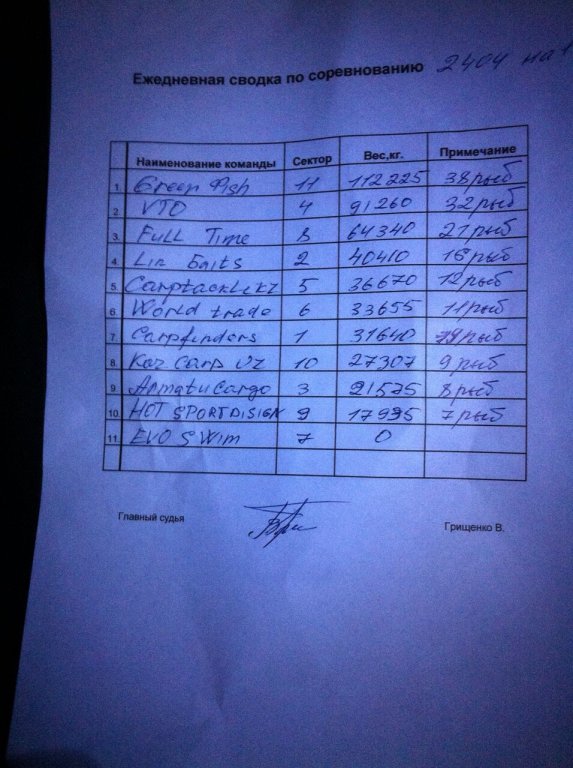 Ежедневная сводка по соревнованию 2404 на
Наименование команды Сектор Вес,кг. Примечание
1. Green Fish 11 112225 38 рыб
2. VTO 4 91260 32 рыб
3. Full Time 8 64340 21 рыб
4. Lin Baits 2 40410 рыб
5. 5 36670 12 рыб
6. World trade 6 33655 11 рыб
7. Carpfinders 1 31640 рыб
8. Kaz Carp 10 27307 9 рыб
9. Almatycargo 3 21575 8 рыб
10. HOT SPORTDISIGN 9 рыб
11. EVO Swim 7 0
Главный судья
Грищенко В.